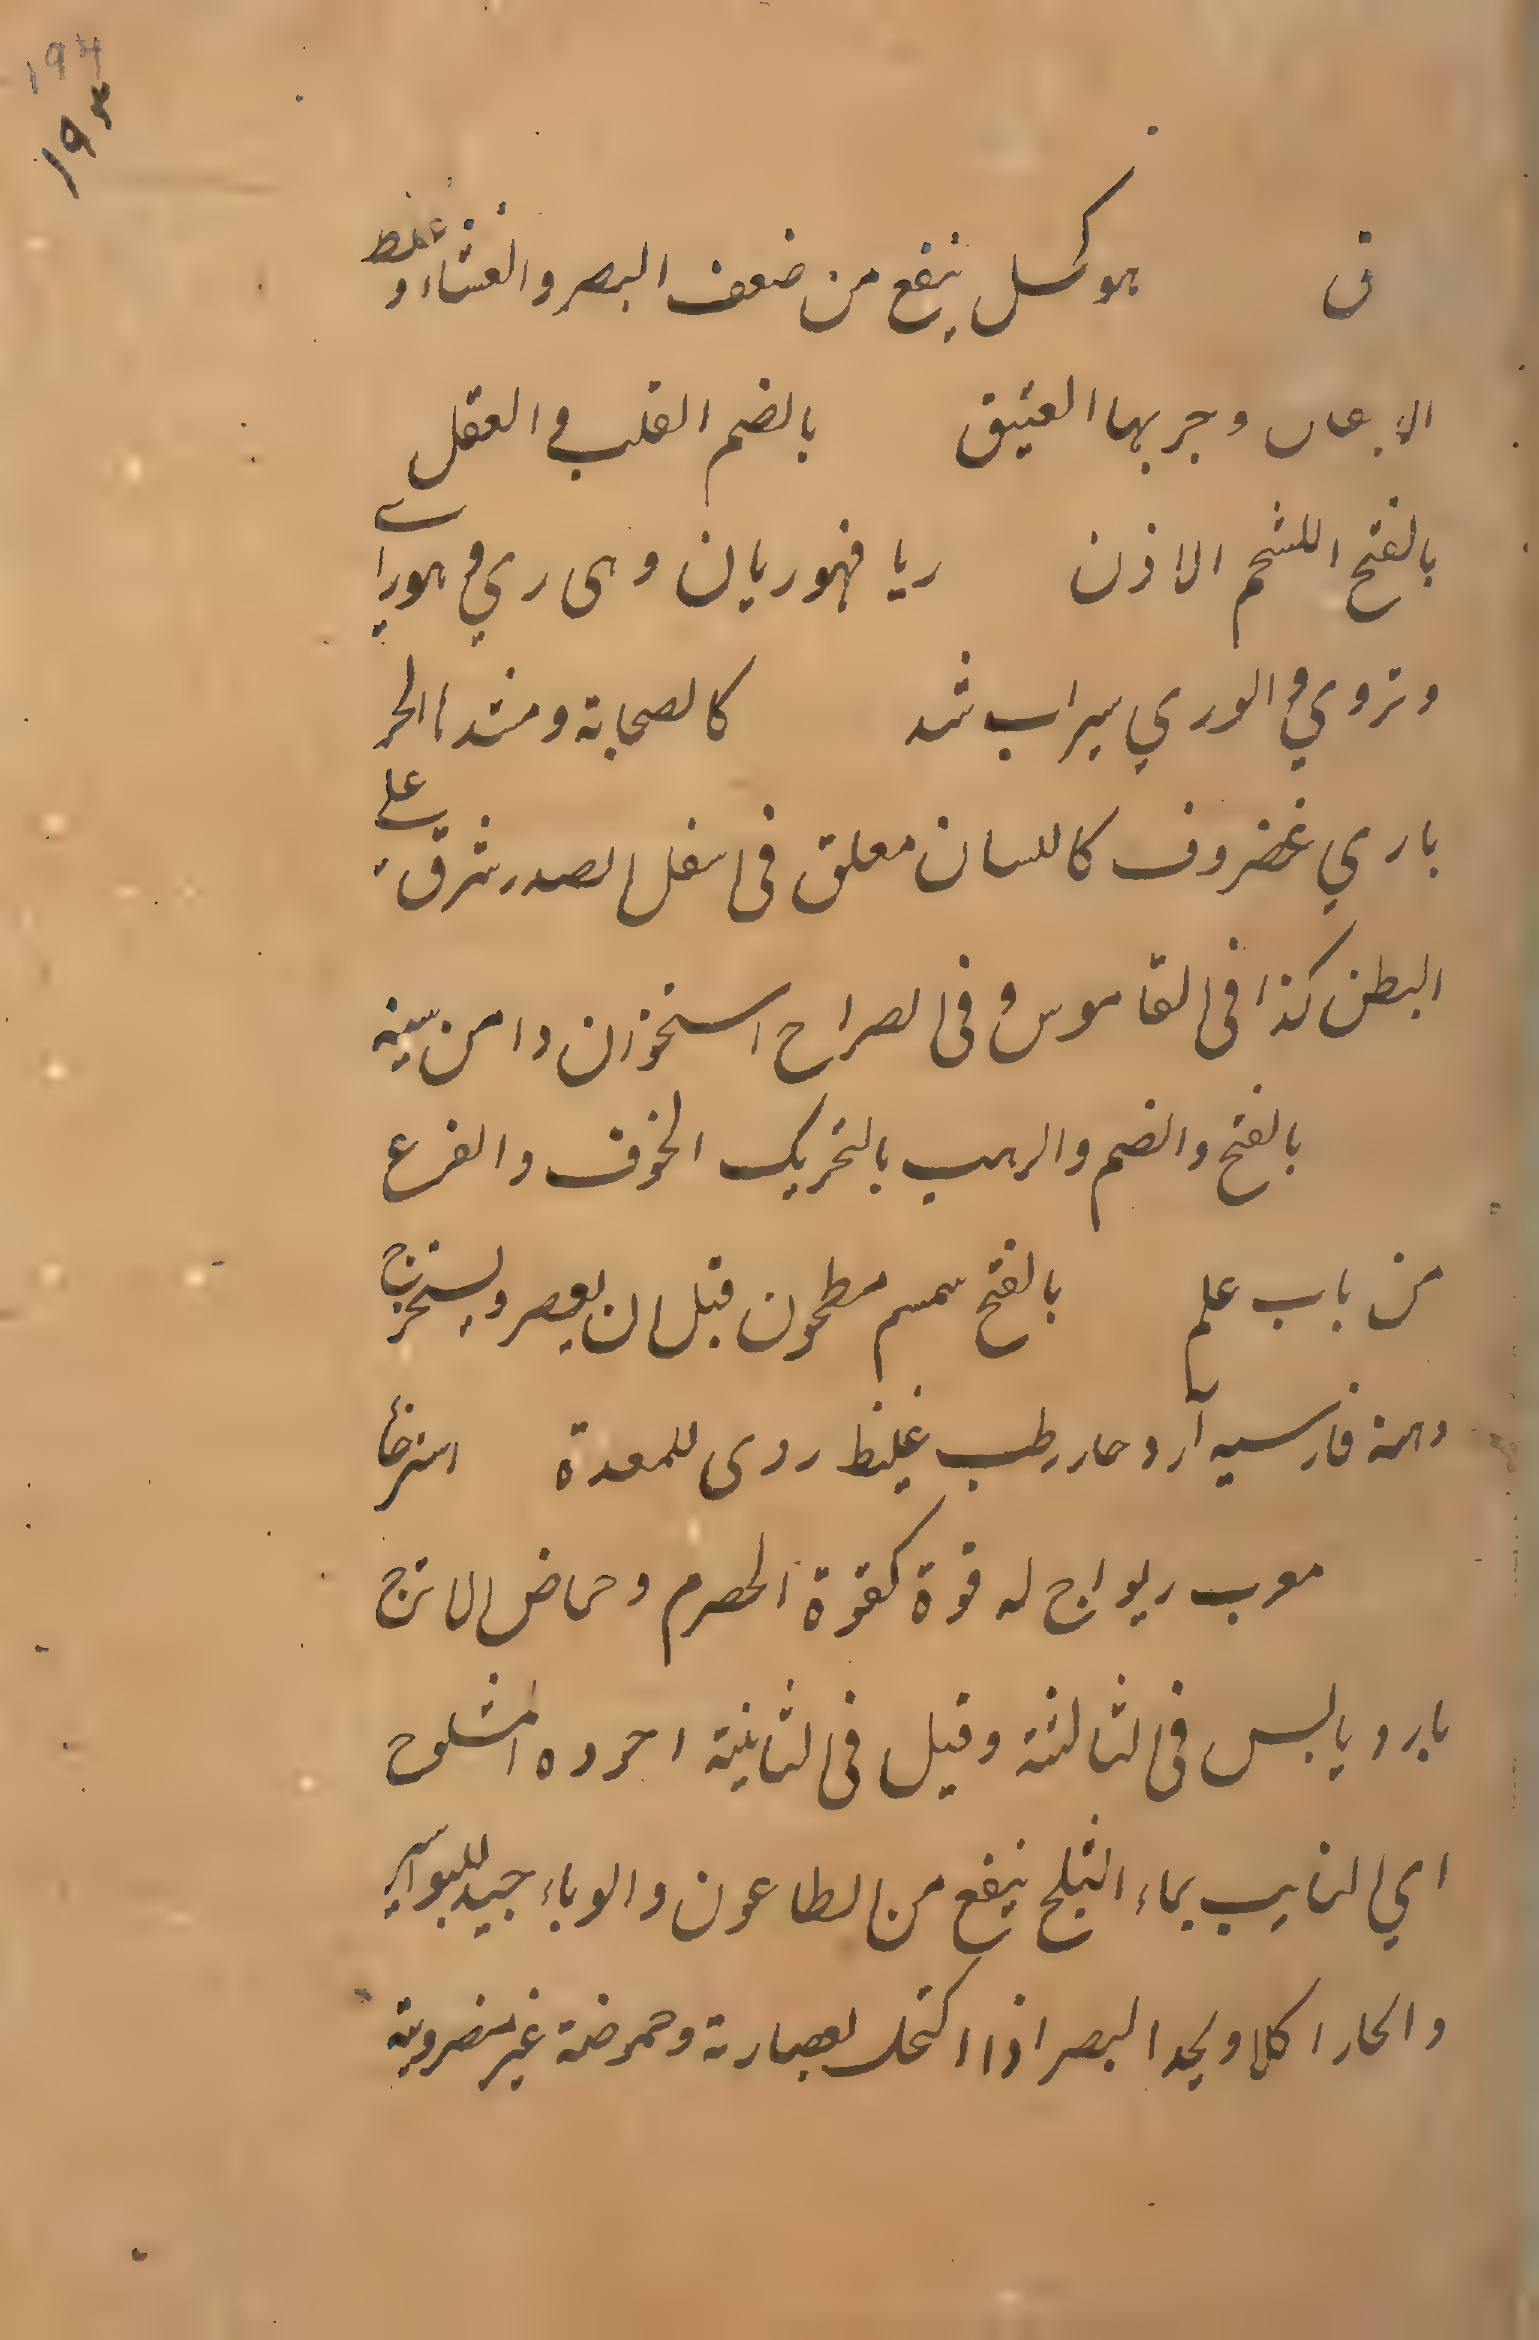 ۱۹۴
۱۹۴
ق هو كسل ينفع من ضعف البصر والغشاء و غلظ
الاجفان وجربها العتيق بالضم القلب و العقل
بالفتح اللشحم الاذن ريا فهو ريان وهى ري و هو رائ
وتروي و الوري سيراب شد كالصحابة ومشداالحر
باري غضروف كاللسان معلق فى اسفل الصدر شرق على
البطن كذا فى القاموس و فى الصراح استخوان دامن سينه
بالفتح والضم والرهب بالتحريك الخوف والفزع
من باب علم بالفتح سمسم مطحون قبل ان يعصر ويستخرج
دهنه فارسيه آرد حار رطب غليظ ردى للمعدة استرخا
معرب ريواج له قوة كقوة الحصرم وحماض الاترج
بارد يابس فى الثالثة وقيل فى الثانية اجوده المثلوج
اي الذايب بماء الثلج ينفع من الطاعون والوباء جيد للبواسير
والحار اكلا ويحد البصر اذا اكتحل بعصارته وحموضة غير مضروبة